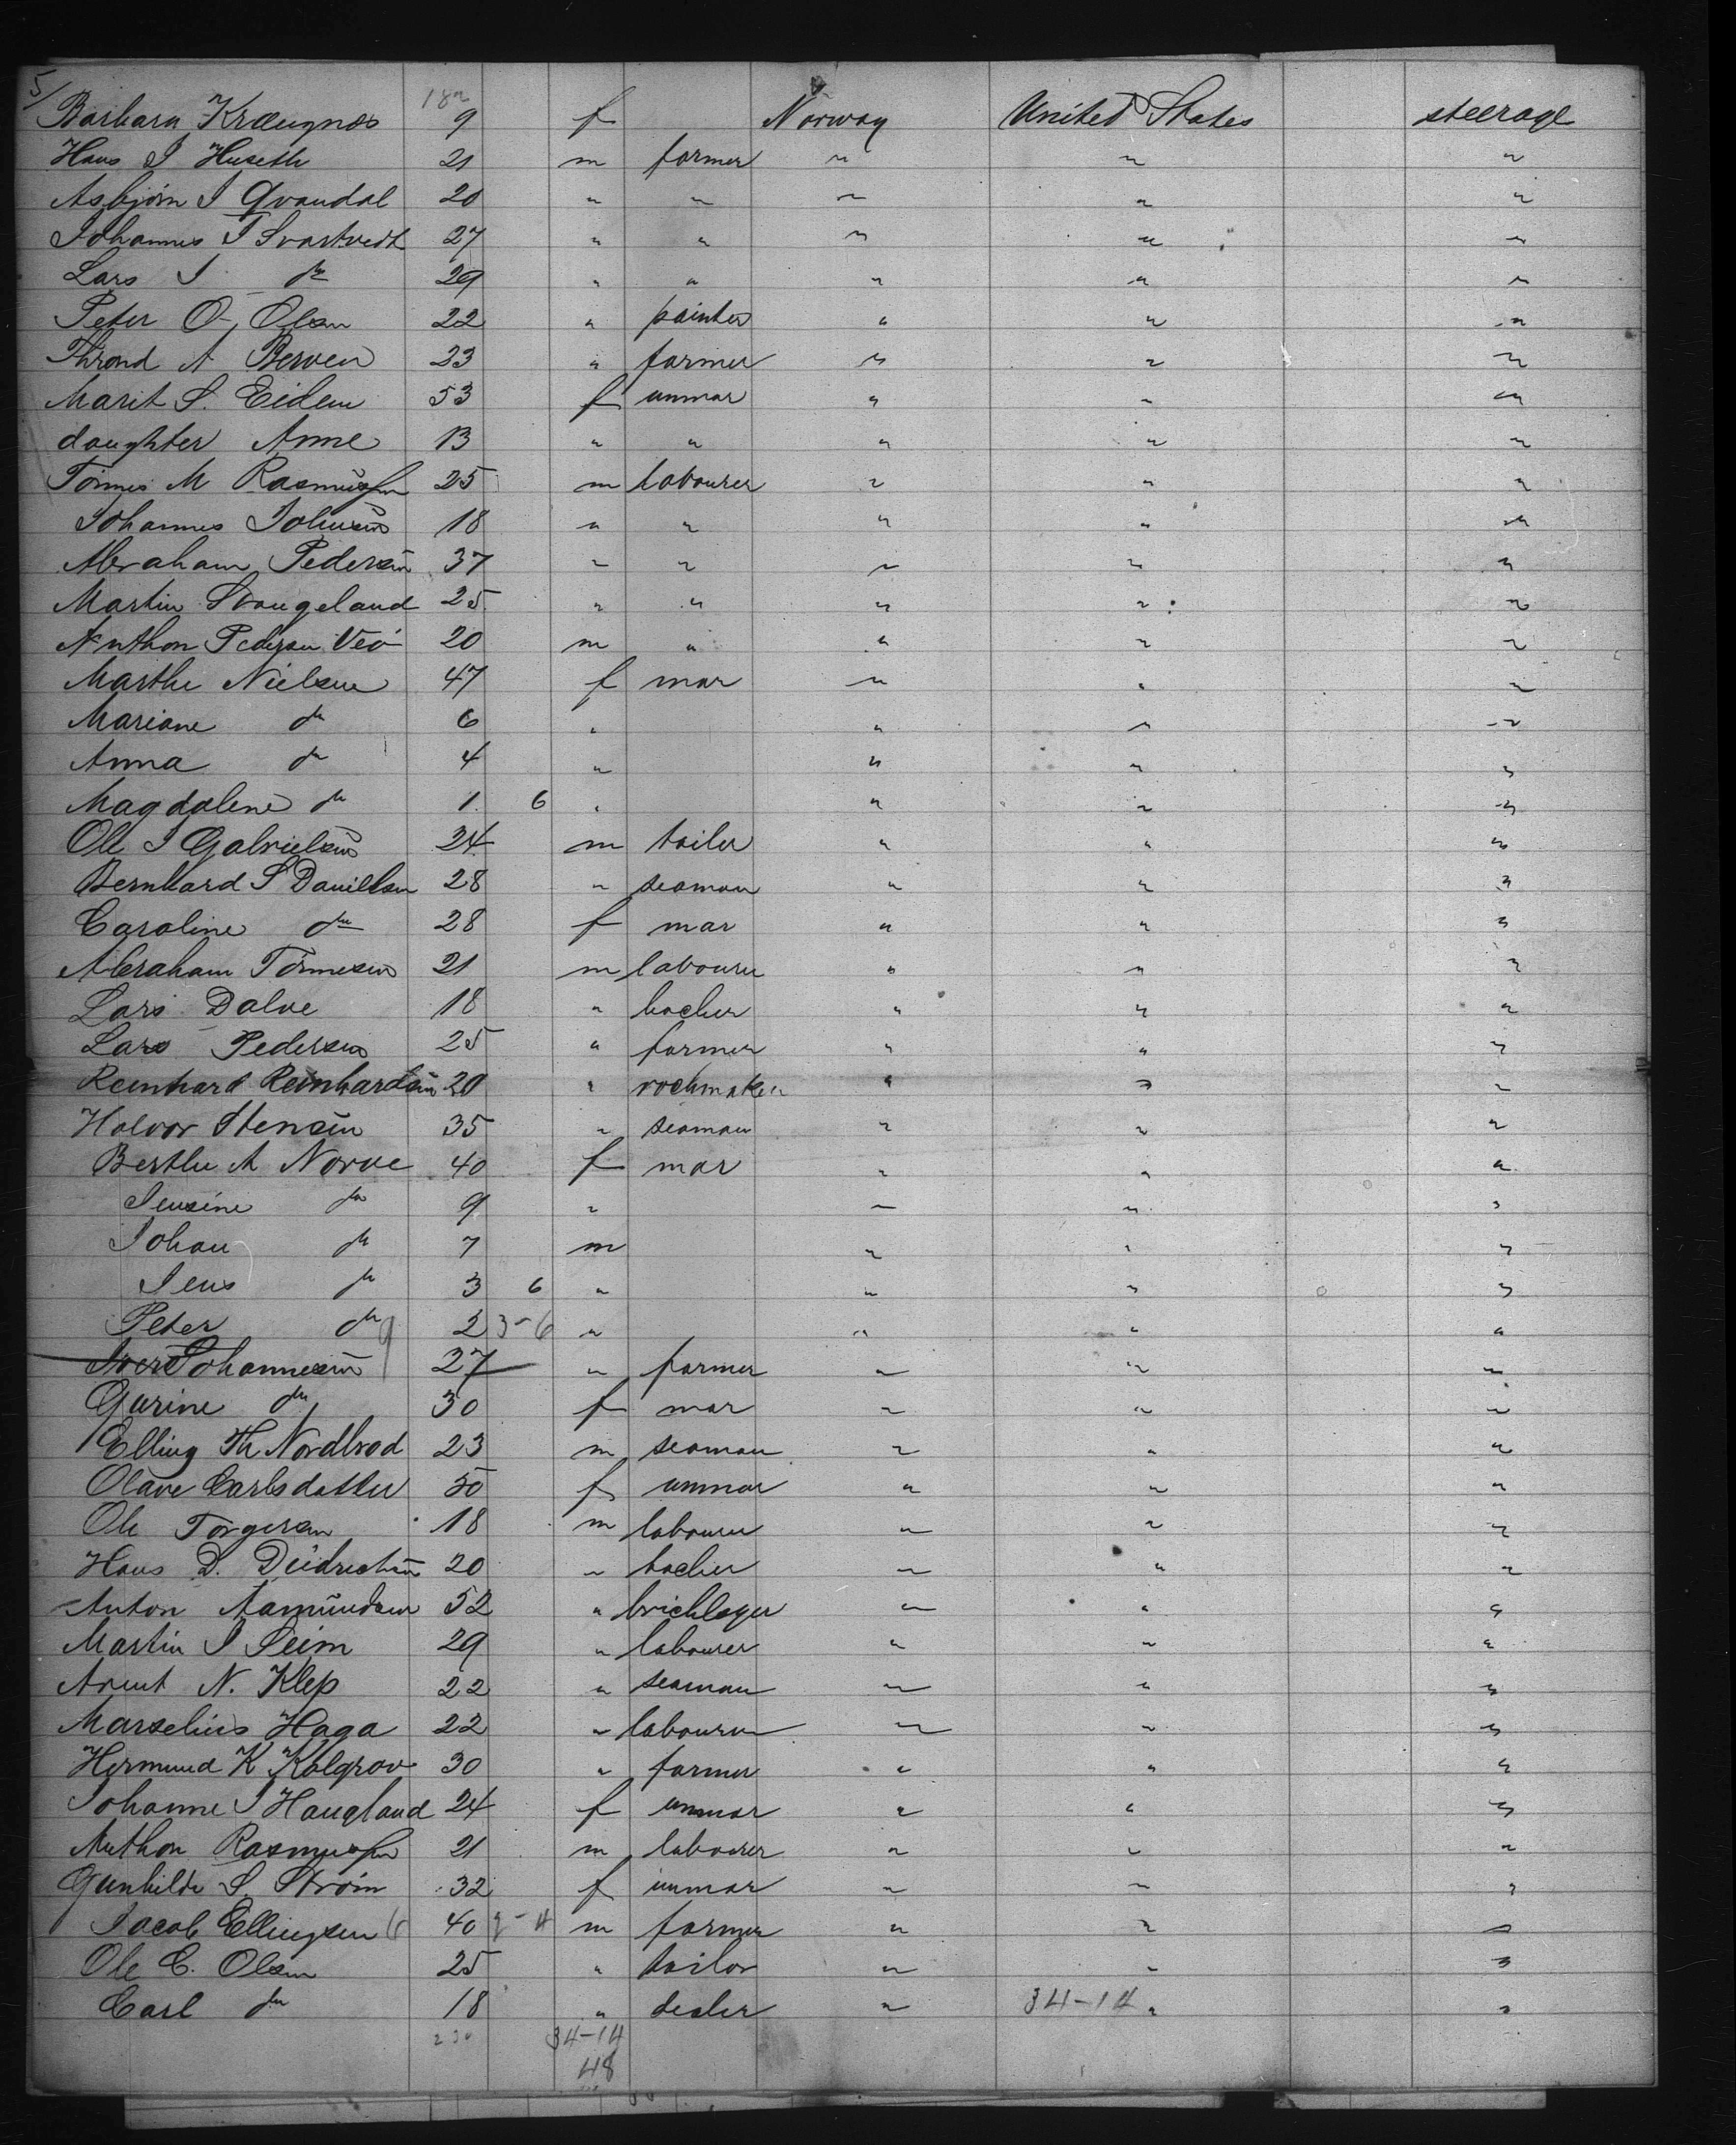 5/ 182
Barbara Kraugnes 9 f Norway United States steerage
Hans I Huseth 21 m farmer " " "
Asbjörn I Qvandal 20 " " " " "
Johannes I Svartvedt 27 " " " " "
Lars I do 29 " " " " "
Peter O. Olsen 22 " painter " " "
Thrond A Berven 23 " farmer " " "
Marit S. Eidem 53 f unmar " " "
daughter Anne 13 " " " " "
Tönnes M Rasmussen 25 m labourer " " "
Johannes Johnsen 18 " " " " "
Abraham Pedersen 37 " " " " "
Martin Stangeland 25 " " " " "
Anthon Pedersen Veö 20 m " " " "
Marthe Nielsen 47 f mar " " "
Mariane do 6 " " " "
Anna do 4 " " " "
Magdalene do 1 6 " " " "
Ole I Gabrielsen 24 m tailer " " "
Bernhard S Daniellsen 28 " seaman " " "
Caroline do 28 f mar " " "
Abraham Tönnesen 21 m labourer " " "
Lars Dalve 18 " bacher " " "
Lars Pedersen 25 " farmer " " "
Reinhard Reinhardsen 20 " " " "
Halvor Stensen 35 " seaman " " "
Berthe A Norve 40 f mar " " "
Jensine do 9 " " " "
Johan do 7 m " " "
Jens do 3 6 " " " "
Peter do 9 2 3-6 " " " "
Iver Johannesen 27 " farmer " " "
Gurine do 30 f mar " " "
Elling Th Nordbrod 23 m seaman " " "
Olave Carlsdatter 50 f unmar " " "
Ole Torgersen 18 m labourer " " "
Hans D. Deidrichsen 20 " bacher " " "
Anton Aamundsen 52 " bricklager " " "
Martin I Seim 29 " labourer " " "
Arent N. Klep 22 " seaman " " "
Marselius Haga 22 " labourer " " "
Hermund K Kolgrov 30 " farmer " " "
Johanne I Haugland 24 f unmar " " "
Anthon Rasmussen 21 m labourer " " "
Gunhilde S. Ström 32 f unmar " " "
Jacob Ellingsen 6 40 2-4 m farmer " " "
Ole C. Olsen 25 " tailor " " "
Carl do 18 " dealer " 34-14 " "
230 34-14
48